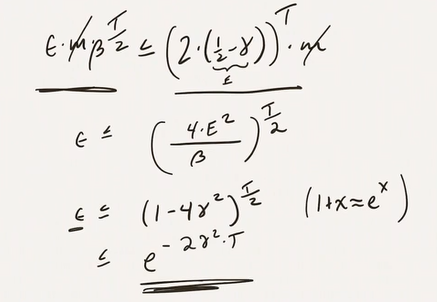 ϵ·mβ^{T/2} ≤ (2·(1/2-γ))^T·m
E
ϵ ≤ (4·E²/β)^{T/2}
ϵ ≤ (1-4γ²)^{T/2} (1+x≈e^x)
≤ e^{-2γ²·T}